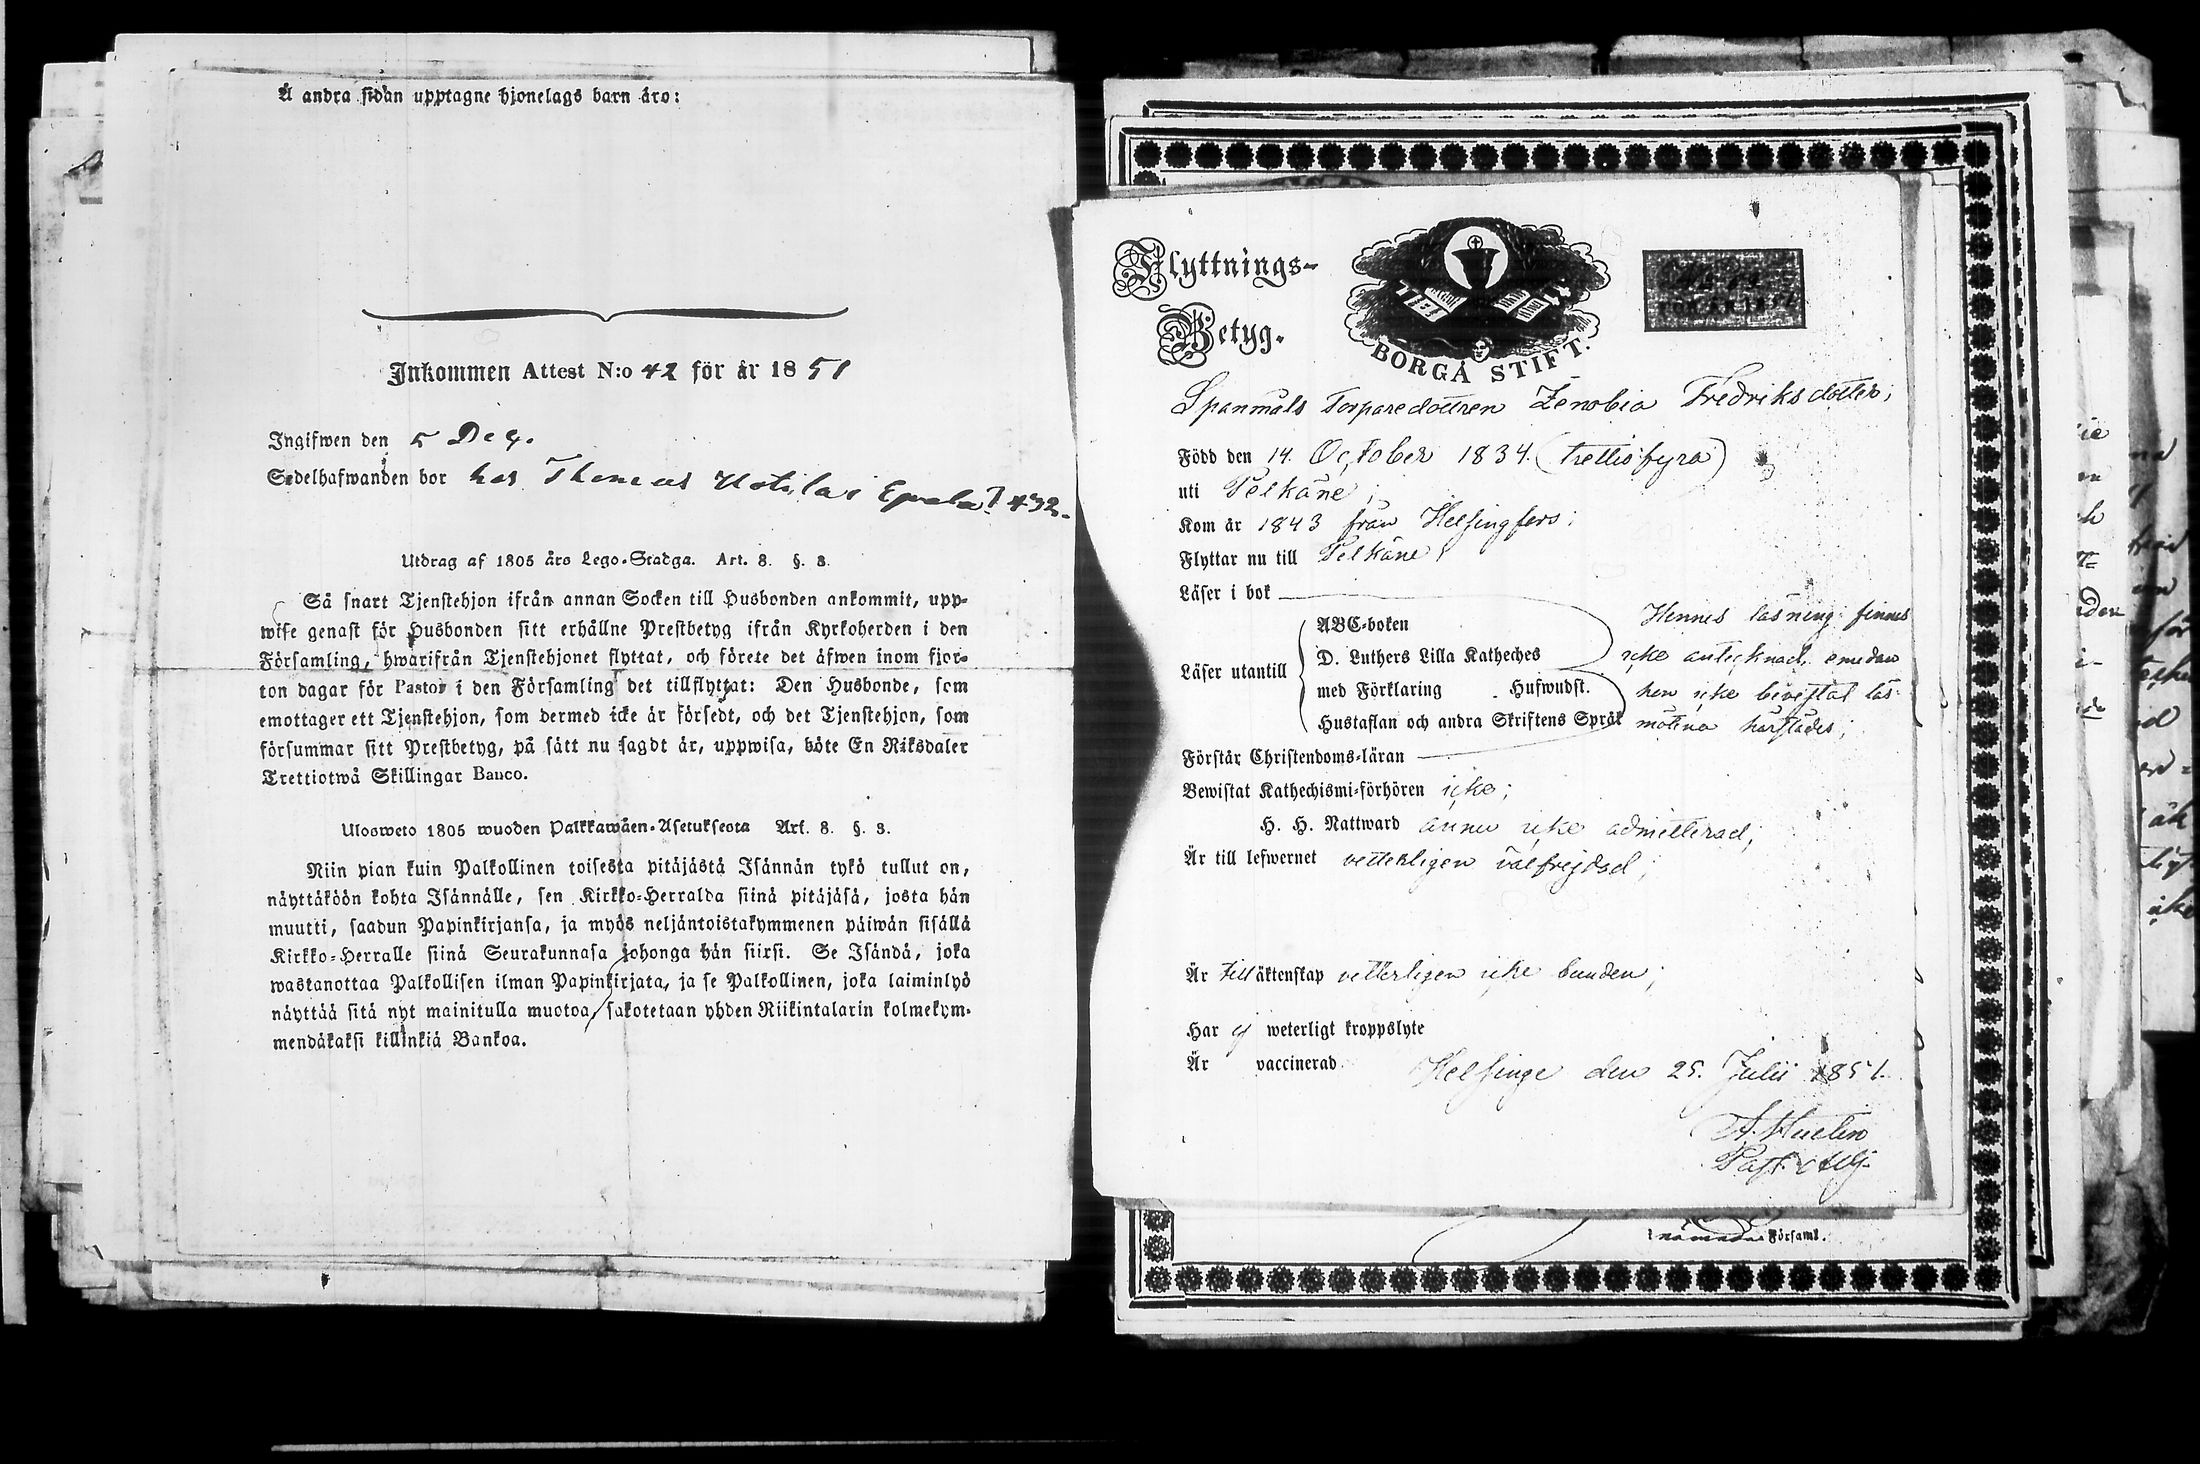 Å andra sidan upptagne hjonelags barn äro:
Inkommen Attest N:o 42 för år 1851
Ingifwen den 5 Dec.
Sedelhafwanden bor hos Thomas Uotila i Epaala
Utdrag af 1805 års Lego-Stadga. Art. 8. §. 3.
Så snart Tjenstehjon ifrån annan Socken till Husbonden ankommit, upp-
wise genast för Husbonden sitt erhållne Prestbetyg ifrån Kyrkoherden i den
Församling, hwarifrån Tjenstehjonet flyttat, och förete det äfwen inom fjor-
ton dagar för Pastor i den Församling det tillflyttat: Den Husbonde, som
emottager ett Tjenstehjon, som dermed icke är försedt, och det Tjenstehjon, som
försummar sitt Prestbetyg, på sätt nu sagdt är, uppwisa, böte En Riksdaler
Trettiotwå Skillingar Banco.
Ulosweto 1805 wuoden Palkkawäen-Asetuksesta Art. 8. §. 3.
Niin pian kuin Palkollinen toisesta pitäjästä Isännän tykö tullut on,
näyttäköön kohta Isännälle, sen Kirkko-Herralda siinä pitäjäsä, josta hän
muutti, saadun Papinkirjansa, ja myös neljäntoistakymmenen päiwän sisällä
Kirkko-Herralle siinä Seurakunnasa johonga hän siirsi. Se Isändä, joka
wastanottaa Palkollisen ilman Papinkirjata, ja se Palkollinen, joka laiminlyö
näyttää sitä nyt mainitulla muotoa, sakotetaan yhden Riikintalarin kolmekym-
mendäkaksi killinkiä Bankoa.
Flyttnings-
Betyg.
BORGÅ STIFT.
FÖR ÅR 1851
Spanmåls Torparedottren Zenobia Fredriksdotter;
Född den 14. October 1834. (trettiofyra)
uti Pelkäne;
Kom år 1843 från Helsingfors;
Flyttar nu till Pelkäne;
Läser i bok
ABC-boken
Läser utantill
D. Luthers Lilla Katheches
med Förklaring Hufwudst.
Hustaflan och andra Skriftens Språk
Hennes läsning finnes
icke antecknad, emedan
hon icke bevistat läs-
mötena härstädes;
Förstår Christendoms-läran
Bewistat Kathechismi-förhören icke;
H. H. Nattward ännu icke admitterad;
Är till lefwernet vetterligen välfrejdad;
Är till äktenskap vetterligen icke bunden;
Har ej weterligt kroppslyte
Är vaccinerad
Helsinge den 25. Julii 1851.
Past. Adj.
Församl.